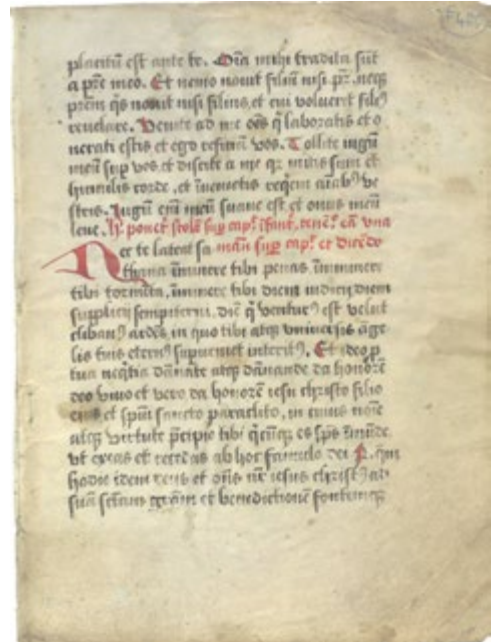 placitũ est ante te. Oĩa mihi tradita sũt
a pr̃e meo. Et nemo novit filiũ nisi pr̃. neq
prem q̃s novit nisi filius, et cui voluerit fili9
revelare. Venite ad me oẽs q̃ laboratis et o
nerati estis et ego reficiã vos. Tollite iugũ
meũ sup vos et discite a me qz mitis sum et
humilis corde, et ĩvenietis requẽ aĩab9 ve
stris. Iugũ em̃ meũ suave est et onus meũ
leve. h̃ ponet stolã sup cap̃ ĩfant, tenẽs eã una
Nec te lateat sa manũ sup cap̃ et dicẽdo
thana ĩminere tibi penas, ĩminere
tibi tormẽta, ĩminere tibi diem iudicij diem
supplicij sempiterni, diẽ q̃ ventur9 est velut
cliban9 ardẽs, in quo tibi atq universis ãge
lis tuis etern9 supveniet interit9. Et ideo p
tua neq̃tia dãnate atq dãnande da honorẽ
deo vivo et vero, da honorẽ iesu christo filio
eius et spũi sancto paraclito, in cuius noĩe
atq virtute p̃cipio tibi q̃cũq es sp̃s ĩmũde
ut exeas et recedas ab hoc famulo dei N. quẽ
hodie idem deus et dñs nr̃ iesus christ9 ad
suã sctam gr̃am et benedictionẽ fontemq